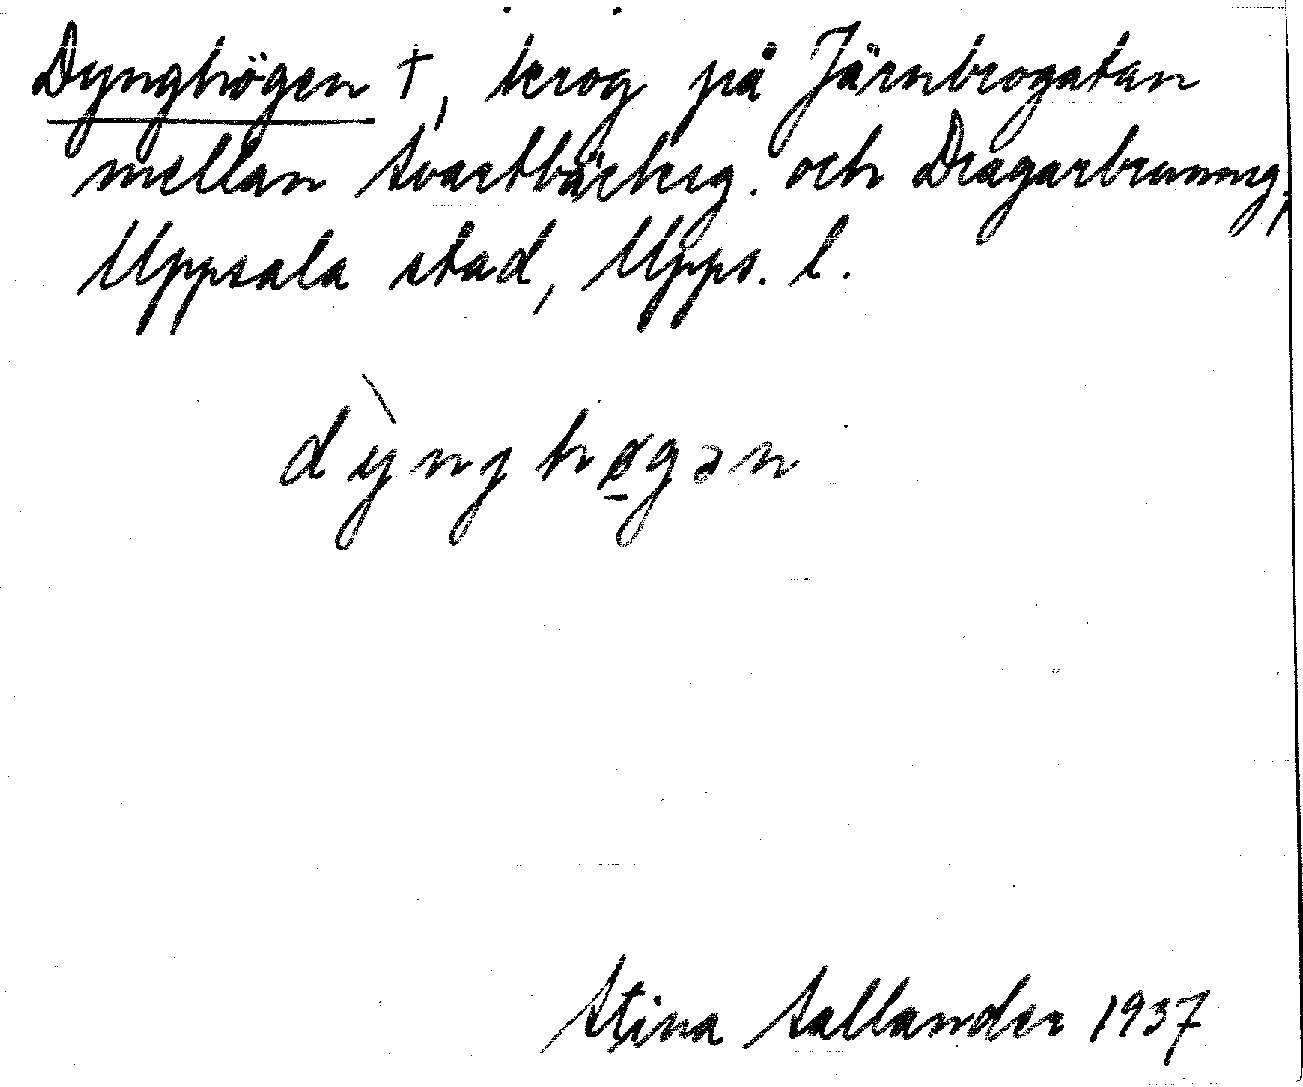 Dynghögen †, krog på Järnbrogatan
mellan Svartbäcksg. och Dragarbrunnsg,
Uppsala stad, Upps. l.
dỳnghø̠gən
Stina Sallander 1937